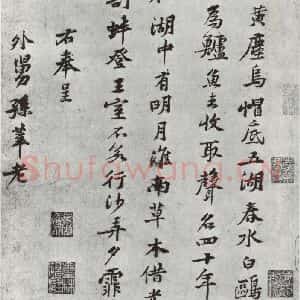 黃塵烏帽底五湖春水白鷗
為鱸魚去收取聲名四十年
湖中有明月淮南草木借光
剖蚌登王室不若行沙弄夕霏
右奉呈
外舅孫莘老
Shufawang.CN